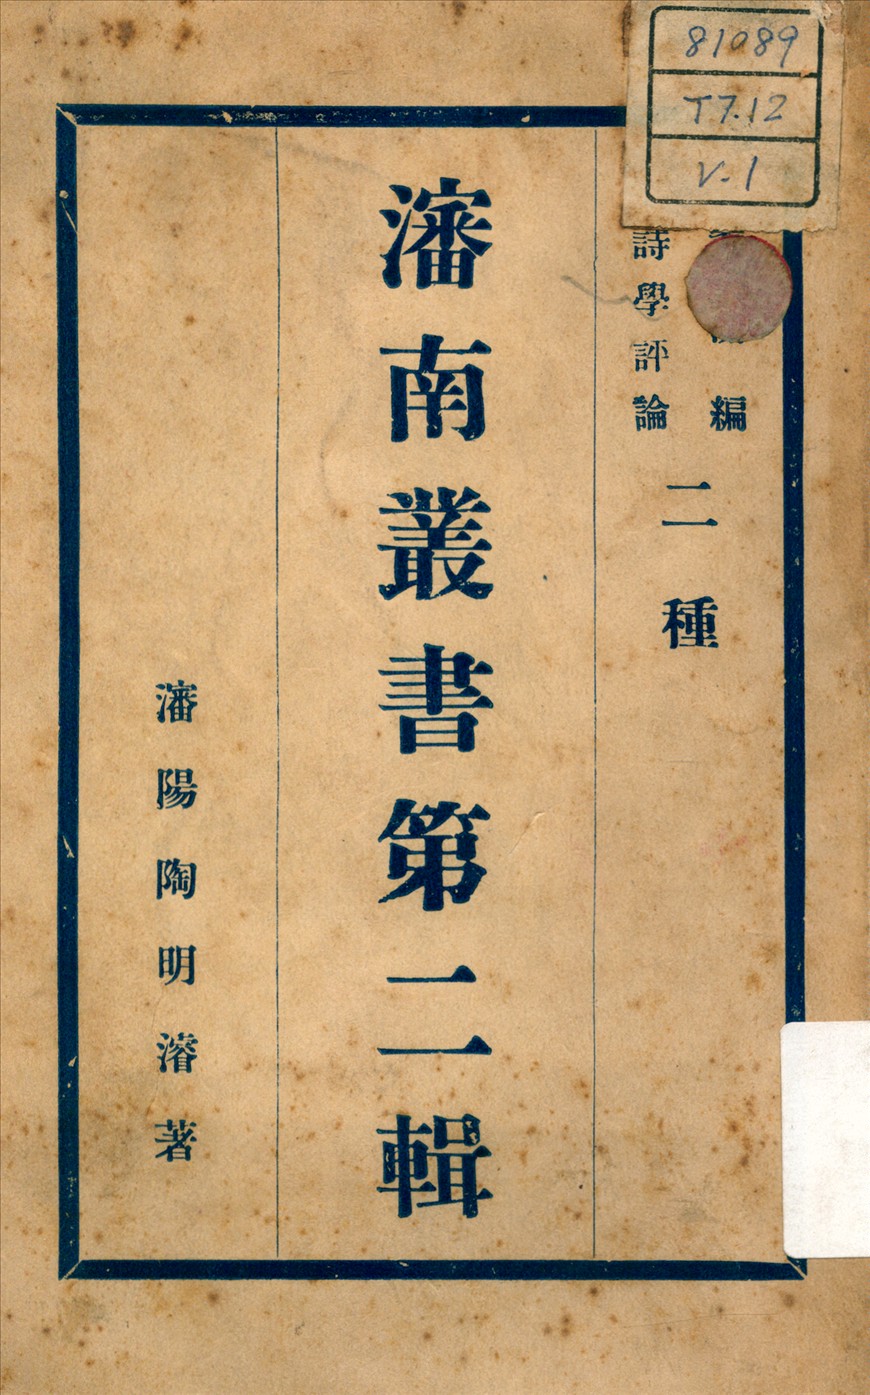 81089
T7.12
V-1
編
詩學評論
二種
瀋南叢書第二輯
瀋陽陶明濬著